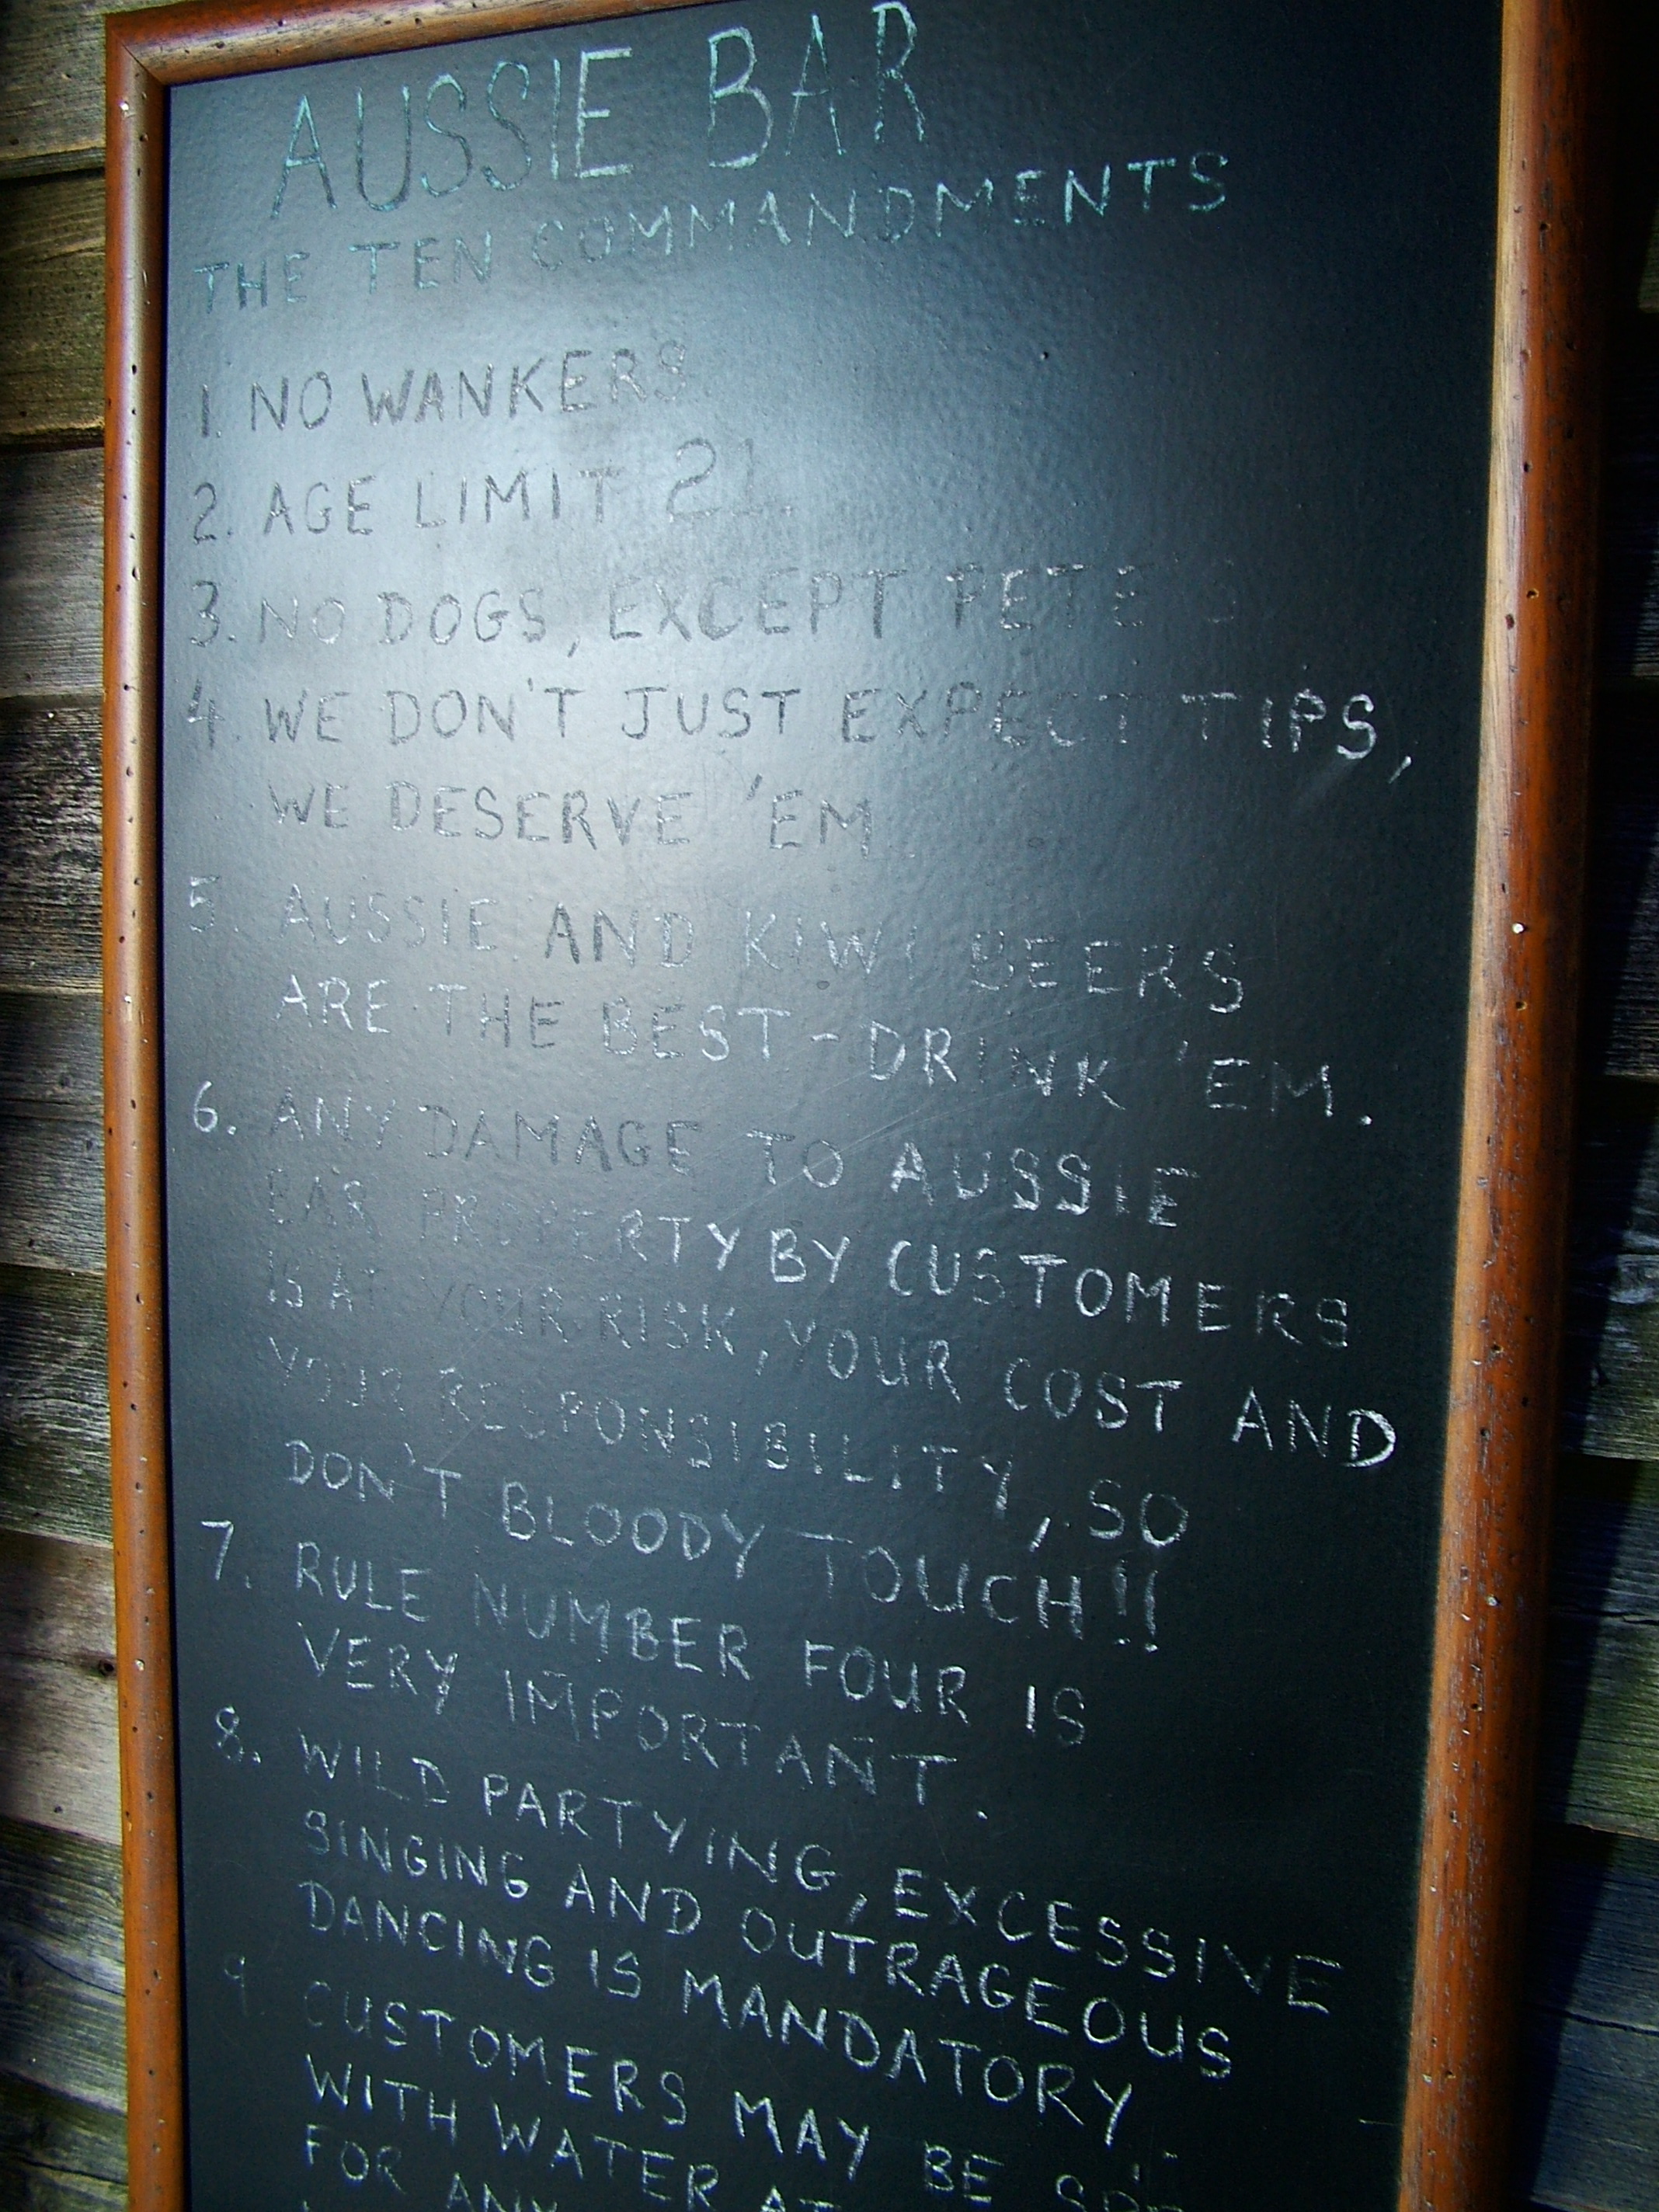 AUSSIE BAR
THE TEN COMMANDMENTS
1. NO WANKERS
2. AGE LIMIT 21.
3. NO DOGS, EXCEPT PETE'S
4. WE DON'T JUST EXPECT TIPS,
WE DESERVE 'EM
5. AUSSIE AND KIWI BEERS
ARE THE BEST - DRINK 'EM.
6. ANY DAMAGE TO AUSSIE
BAR PROPERTY BY CUSTOMERS
IS AT YOUR RISK, YOUR COST AND
YOUR RESPONSIBILITY, SO
DON'T BLOODY TOUCH!!
7. RULE NUMBER FOUR IS
VERY IMPORTANT.
8. WILD PARTYING, EXCESSIVE
SINGING AND OUTRAGEOUS
DANCING IS MANDATORY.
9. CUSTOMERS MAY BE
WITH WATER AT
FOR ANY